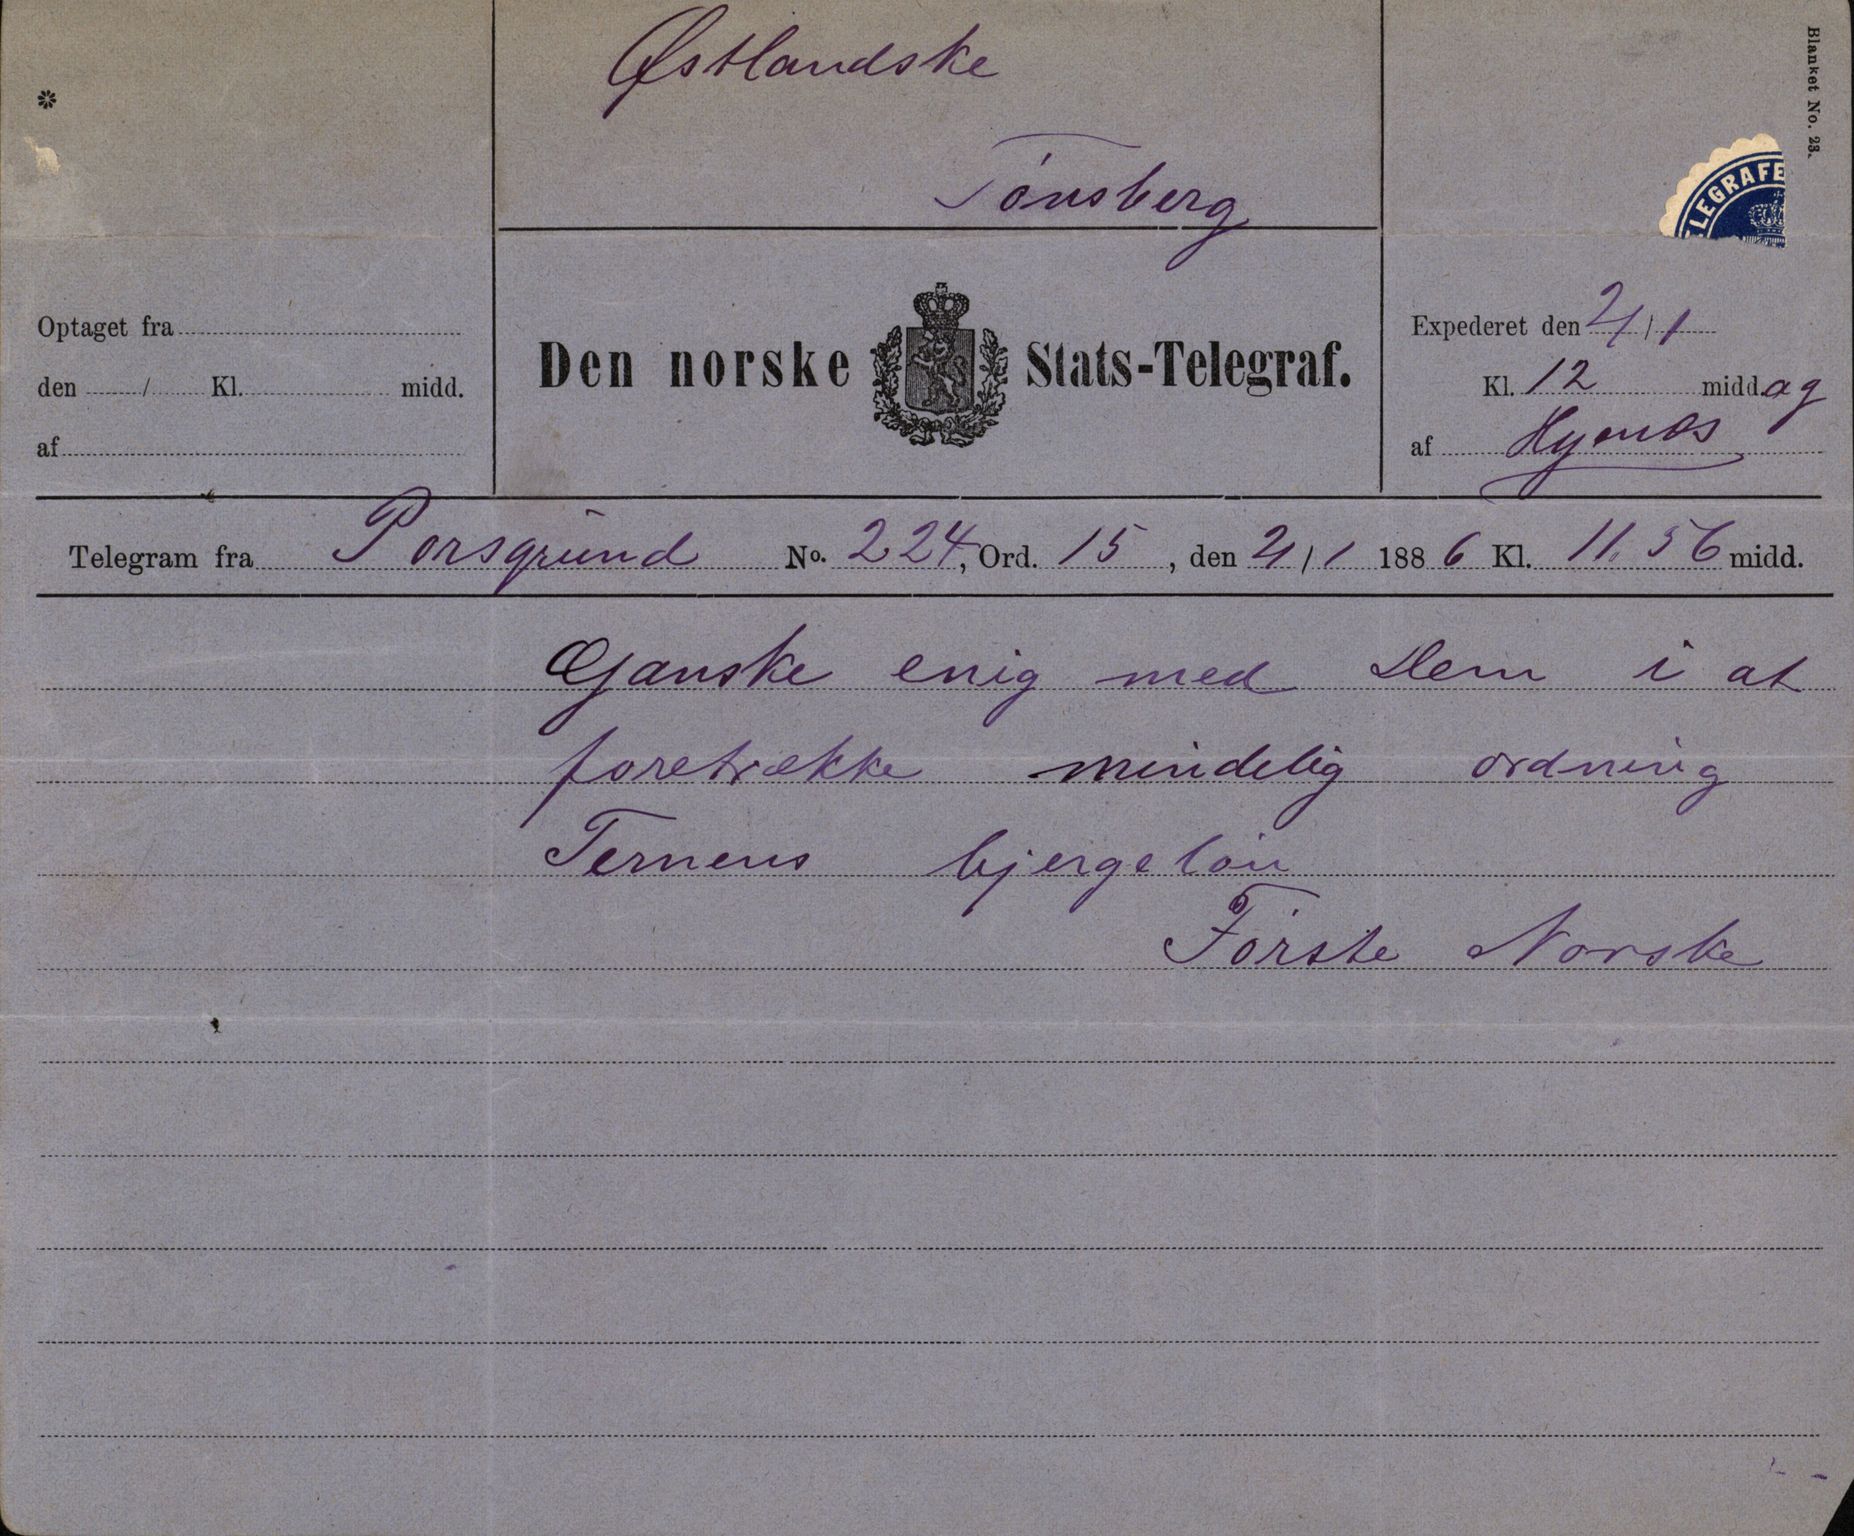 Blanket No. 23.
*
Østlandske
Tönsberg
LEGRAFE
Optaget fra
den / Kl. midd.
af
Den norske Stats-Telegraf.
Expederet den 21/1
Kl. 12 midd.ag
af
Telegram fra Porsgrund No. 224, Ord. 15, den 21/1 1886 Kl. 11.56 midd.
Ganske enig med Dem i at
foretrække mindelig ordning
Ternens bjergelön
Förste Norske